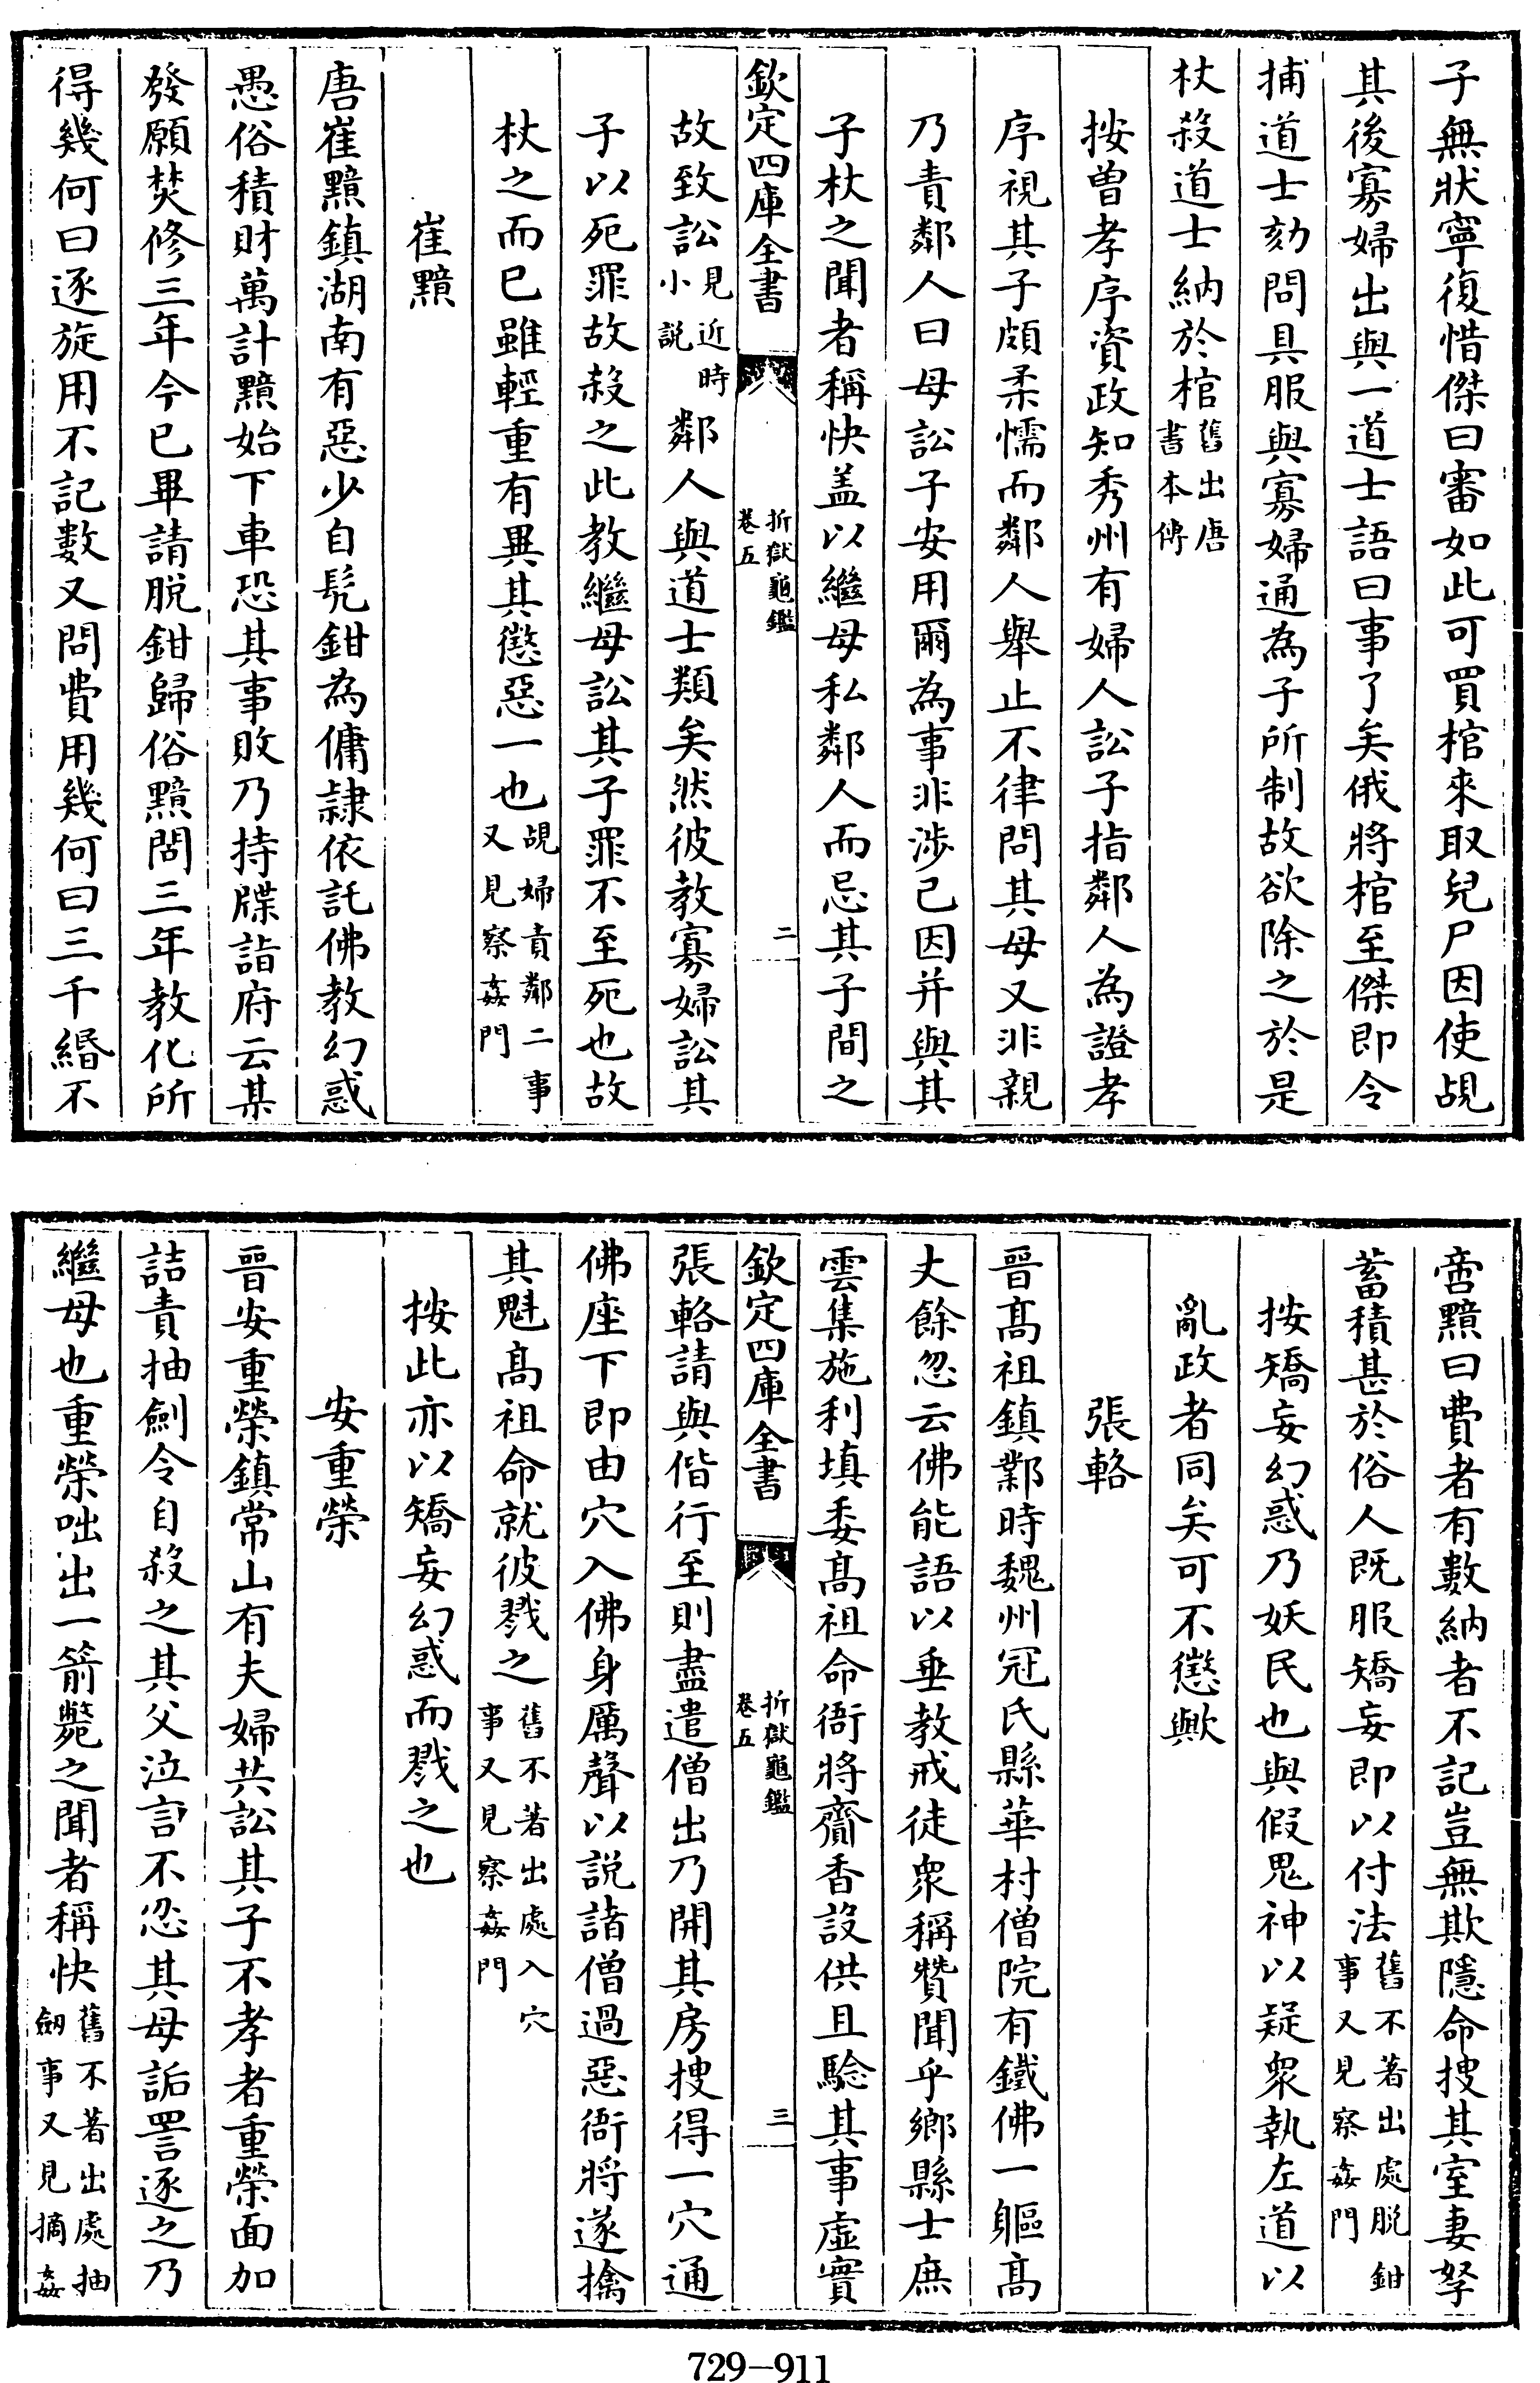 子無狀寧復惜傑曰審如此可買棺來取兒尸因使覘
其後寡婦出與一道士語曰事了矣俄將棺至傑即令
捕道士劾問具服與寡婦通為子所制故欲除之於是
杖殺道士納於棺舊出唐書本傳
按曾孝序資政知秀州有婦人訟子指鄰人為證孝
序視其子頗柔懦而鄰人舉止不律問其母又非親
乃責鄰人曰母訟子安用爾為事非涉己因并與其
子杖之聞者稱快盖以繼母私鄰人而忌其子間之
欽定四庫全書 折獄龜鑑卷五 二
故致訟見近時小説鄰人與道士類矣然彼教寡婦訟其
子以死罪故殺之此教繼母訟其子罪不至死也故
杖之而已雖輕重有異其懲惡一也覘婦責鄰二事又見察姦門
崔黯
唐崔黯鎮湖南有惡少自髠鉗為傭隷依託佛教幻惑
愚俗積財萬計黯始下車恐其事敗乃持牒詣府云某
發願焚修三年今已畢請脱鉗歸俗黯問三年教化所
得幾何曰逐旋用不記數又問費用幾何曰三千緡不
啻黯曰費者有數納者不記豈無欺隱命搜其室妻孥
蓄積甚於俗人既服矯妄即以付法舊不著出處脱鉗事又見察姦門
按矯妄幻惑乃妖民也與假鬼神以疑衆執左道以
亂政者同矣可不懲歟
張輅
晉髙祖鎮鄴時魏州冠氏縣華村僧院有鐵佛一軀髙
丈餘忽云佛能語以垂教戒徒衆稱贊聞乎鄉縣士庶
雲集施利填委髙祖命衙將齎香設供且驗其事虛實
欽定四庫全書 折獄龜鑑卷五 三
張輅請與偕行至則盡遣僧出乃開其房搜得一穴通
佛座下即由穴入佛身厲聲以説諸僧過惡衙將遂擒
其魁髙祖命就彼戮之舊不著出處入穴事又見察姦門
按此亦以矯妄幻惑而戮之也
安重榮
晉安重榮鎮常山有夫婦共訟其子不孝者重榮面加
詰責抽劍令自殺之其父泣言不忍其母詬詈逐之乃
繼母也重榮咄出一箭斃之聞者稱快舊不著出處抽劒事又見摘姦
729—911